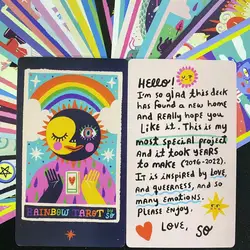 RAINBOW TAROT
BY
SO
Hello!
I'm so glad this deck
has found a new home
and Really hope you
Like it. This is my
most special project
and it took YEARS
to make (2016-2022).
It is inspired by LOVE,
and queerness, and so
many emotions.
Please Enjoy.
LOVE, SO